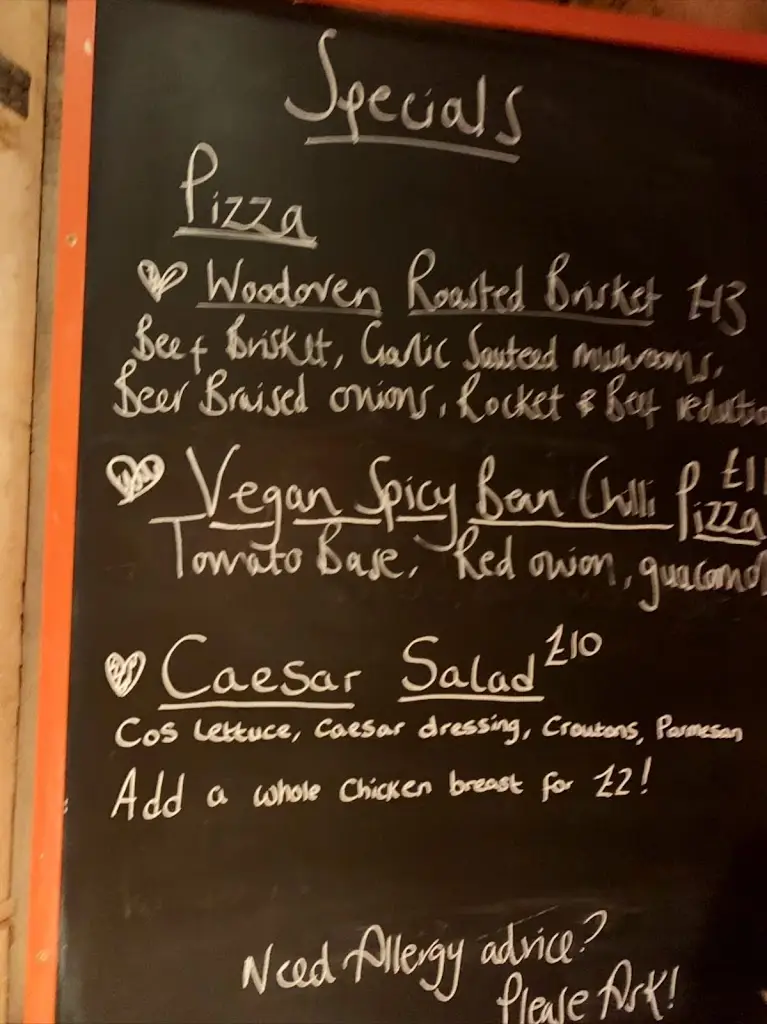 Specials
Pizza
Woodoven Roasted Brisket £13
Beef Brisket, Garlic Sauteed mushrooms,
Beer Braised onions, Rocket & Beef reductio
£11
Vegan Spicy Bean Chilli Pizza
Tomato Base, Red onion, guacamol
Caesar Salad £10
Cos Lettuce, Caesar dressing, Croutons, Parmesan
Add a whole Chicken breast for £2!
Need Allergy advice?
Please Ask!